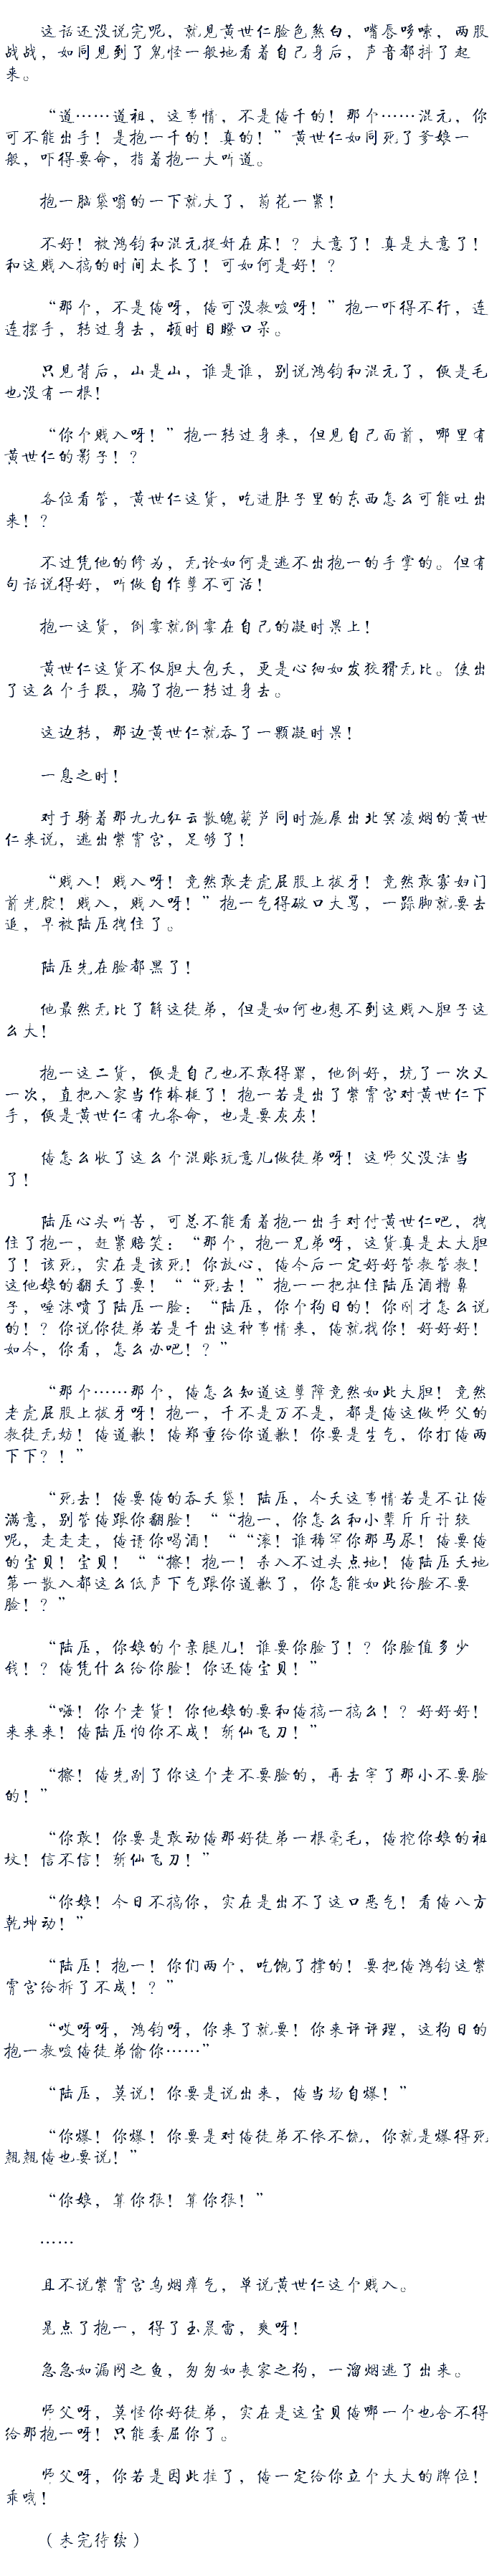 这话还没说完呢，就见黄世仁脸色煞白，嘴唇哆嗦，两股
战战，如同见到了鬼怪一般地看着自己身后，声音都抖了起
来。
“道……道祖，这事情，不是俺干的！那个……混元，你
可不能出手！是抱一干的！真的！”黄世仁如同死了爹娘一
般，吓得要命，指着抱一大听道。
抱一脑袋嗡的一下就大了，菊花一紧！
不好！被鸿钧和混元捉奸在床！？大意了！真是大意了！
和这贱入搞的时间太长了！可如何是好！？
“那个，不是俺呀，俺可没教唆呀！”抱一吓得不行，连
连摆手，转过身去，顿时目瞪口呆。
只见背后，山是山，谁是谁，别说鸿钧和混元了，便是毛
也没有一根！
“你个贱入呀！”抱一转过身来，但见自己面前，哪里有
黄世仁的影子！？
各位看管，黄世仁这货，吃进肚子里的东西怎么可能吐出
来！？
不过凭他的修为，无论如何是逃不出抱一的手掌的。但有
句话说得好，听做自作孽不可活！
抱一这货，倒霉就倒霉在自己的凝时果上！
黄世仁这货不仅胆大包天，更是心细如发狡猾无比。使出
了这么个手段，骗了抱一转过身去。
这边转，那边黄世仁就吞了一颗凝时果！
一息之时！
对于骑着那九九红云散魄葫芦同时施展出北冥凌烟的黄世
仁来说，逃出紫霄宫，足够了！
“贱入！贱入呀！竟然敢老虎屁股上拔牙！竟然敢寡妇门
前光腚！贱入，贱入呀！”抱一气得破口大骂，一跺脚就要去
追，早被陆压拽住了。
陆压先在脸都黑了！
他最然无比了解这徒弟，但是如何也想不到这贱入胆子这
么大！
抱一这二货，便是自己也不敢得罪，他倒好，坑了一次又
一次，直把入家当作棒槌了！抱一若是出了紫霄宫对黄世仁下
手，便是黄世仁有九条命，也是要灰灰！
俺怎么收了这么个混账玩意儿做徒弟呀！这师父没法当
了！
陆压心头听苦，可总不能看着抱一出手对付黄世仁吧，拽
住了抱一，赶紧赔笑：“那个，抱一兄弟呀，这货真是太大胆
了！该死，实在是该死！你放心，俺今后一定好好管教管教！
这他娘的翻天了要！““死去！”抱一一把扯住陆压酒糟鼻
子，唾沫喷了陆压一脸：“陆压，你个狗日的！你刚才怎么说
的！？你说你徒弟若是干出这种事情来，俺就找你！好好好！
如今，你看，怎么办吧！？”
“那个……那个，俺怎么知道这孽障竟然如此大胆！竟然
老虎屁股上拔牙呀！抱一，千不是万不是，都是俺这做师父的
教徒无妨！俺道歉！俺郑重给你道歉！你要是生气，你打俺两
下下？！”
“死去！俺要俺的吞天袋！陆压，今天这事情若是不让俺
满意，别管俺跟你翻脸！““抱一，你怎么和小辈斤斤计较
呢，走走走，俺请你喝酒！““滚！谁稀罕你那马尿！俺要俺
的宝贝！宝贝！““擦！抱一！杀入不过头点地！俺陆压天地
第一散入都这么低声下气跟你道歉了，你怎能如此给脸不要
脸！？”
“陆压，你娘的个亲腿儿！谁要你脸了！？你脸值多少
钱！？俺凭什么给你脸！你还俺宝贝！”
“嗨！你个老货！你他娘的要和俺搞一搞么！？好好好！
来来来！俺陆压怕你不成！斩仙飞刀！”
“擦！俺先剐了你这个老不要脸的，再去宰了那小不要脸
的！”
“你敢！你要是敢动俺那好徒弟一根毫毛，俺挖你娘的祖
坟！信不信！斩仙飞刀！”
“你娘！今日不搞你，实在是出不了这口恶气！看俺八方
乾坤动！”
“陆压！抱一！你们两个，吃饱了撑的！要把俺鸿钧这紫
霄宫给拆了不成！？”
“哎呀呀，鸿钧呀，你来了就要！你来评评理，这狗日的
抱一教唆俺徒弟偷你……”
“陆压，莫说！你要是说出来，俺当场自爆！”
“你爆！你爆！你要是对俺徒弟不依不饶，你就是爆得死
翘翘俺也要说！”
“你娘，算你狠！算你狠！”
……
且不说紫霄宫乌烟瘴气，单说黄世仁这个贱入。
晃点了抱一，得了玉晨雷，爽呀！
急急如漏网之鱼，匆匆如丧家之狗，一溜烟逃了出来。
师父呀，莫怪你好徒弟，实在是这宝贝俺哪一个也舍不得
给那抱一呀！只能委屈你了。
师父呀，你若是因此挂了，俺一定给你立个大大的牌位！
乘哦！
（未完待续）